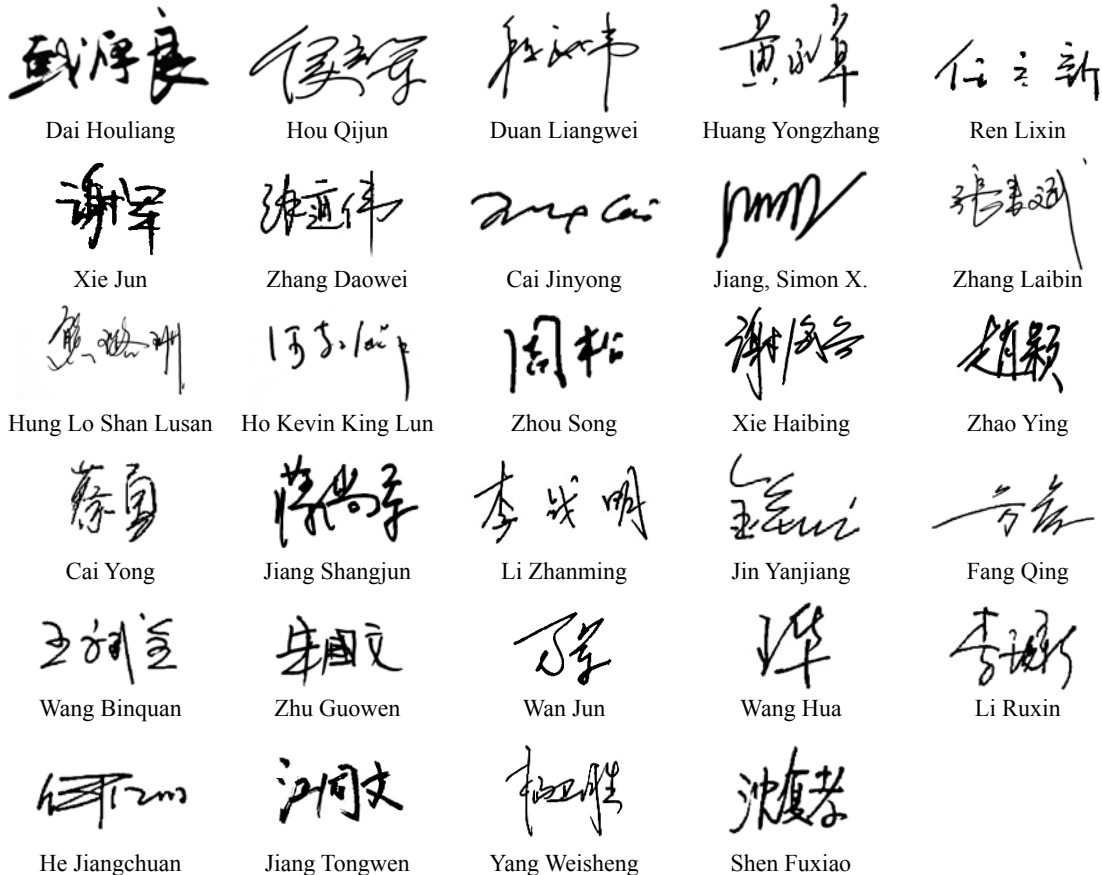 戴厚良 侯启军 段良伟 黄永章 任立新
Dai Houliang Hou Qijun Duan Liangwei Huang Yongzhang Ren Lixin
谢军 张道伟
Xie Jun Zhang Daowei Cai Jinyong Jiang, Simon X. Zhang Laibin
周松 谢海兵 赵颖
Hung Lo Shan Lusan Ho Kevin King Lun Zhou Song Xie Haibing Zhao Ying
蔡勇 蒋尚军 李战明
Cai Yong Jiang Shangjun Li Zhanming Jin Yanjiang Fang Qing
朱國文 万军 王华
Wang Binquan Zhu Guowen Wan Jun Wang Hua Li Ruxin
江同文 杨卫胜 沈复孝
He Jiangchuan Jiang Tongwen Yang Weisheng Shen Fuxiao